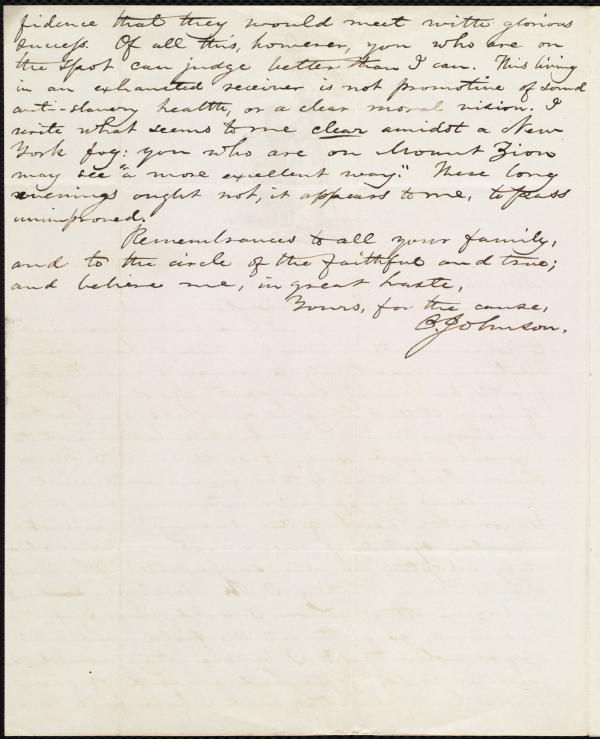 fidence that they would meet with glorious
success. Of all this, however, you who are on
the spot can judge better than I can. This living
in an exhausted receiver is not promotive of sound
anti-slavery health, or a clear moral vision. I
write what seems to me clear amidst a New
York fog: you who are on Mount Zion
may see "a more excellent way." These long
evenings ought not, it appears to me, to pass
unimproved.
Remembrances to all your family,
and to the circle of the faithful and true;
and believe me, in great haste,
Yours, for the cause,
O. Johnson.